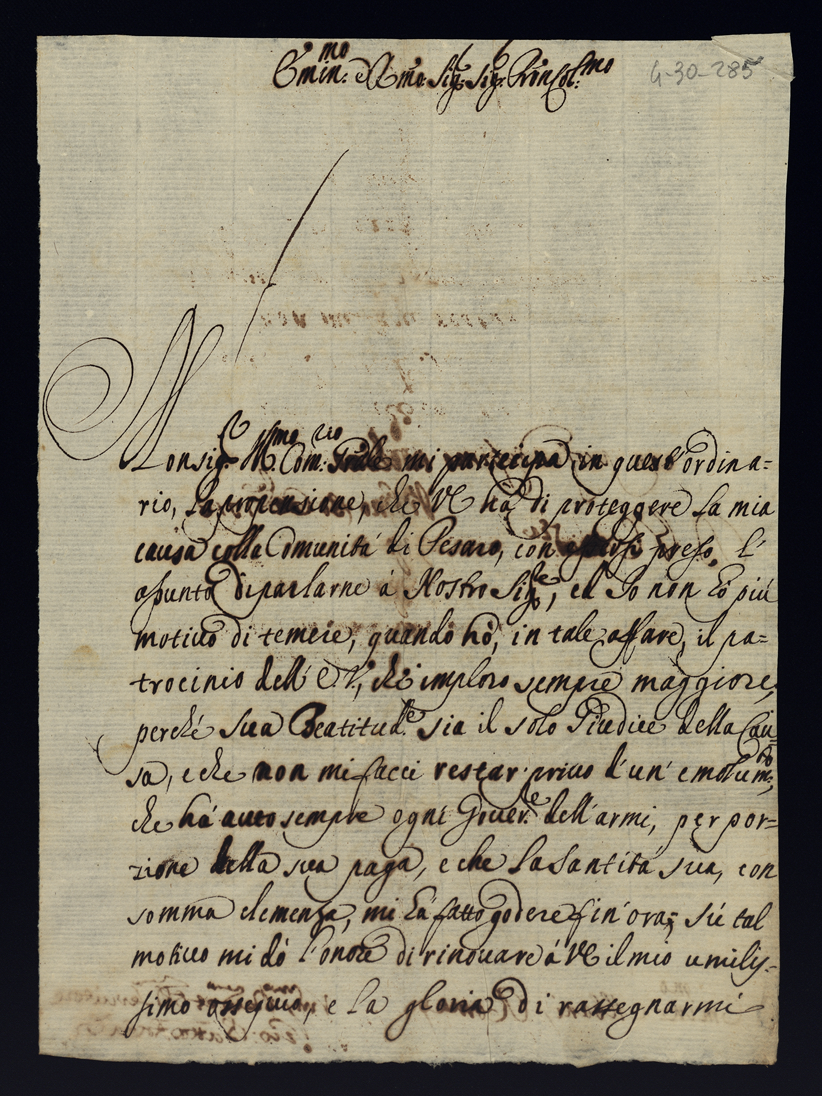 Emin.mo e Rmo Sig. Sig. Pron Col.mo
4-30-285
Monsig.r Ill.mo Com.rio Gnle mi partecipa in quest'ordina=
rio, la propensione, che VE ha di proteggere la mia
causa colla Comunitá di Pesaro, con preso l'
assunto di parlarne á Nostro Sig.re, ed Io non hó piú
motivo di temere, quando hó, in tale affare, il pa=
trocinio dell' E.V., che imploro sempre maggiore,
perché sua Beatitud.e sia il solo Giudice della Cau=
sa, e che non mi facci restar privo d'un' emolum.to,
che há auto sempre ogni Gover.re dell'armi, per por=
zione della sua paga, e che la Santitá sua, con
somma clemenza, mi há fatto godere fin'ora; sú tal
motivo mi dó l'onore di rinovare á VE il mio umilis=
simo ossequio, e la gloria di rassegnarmi